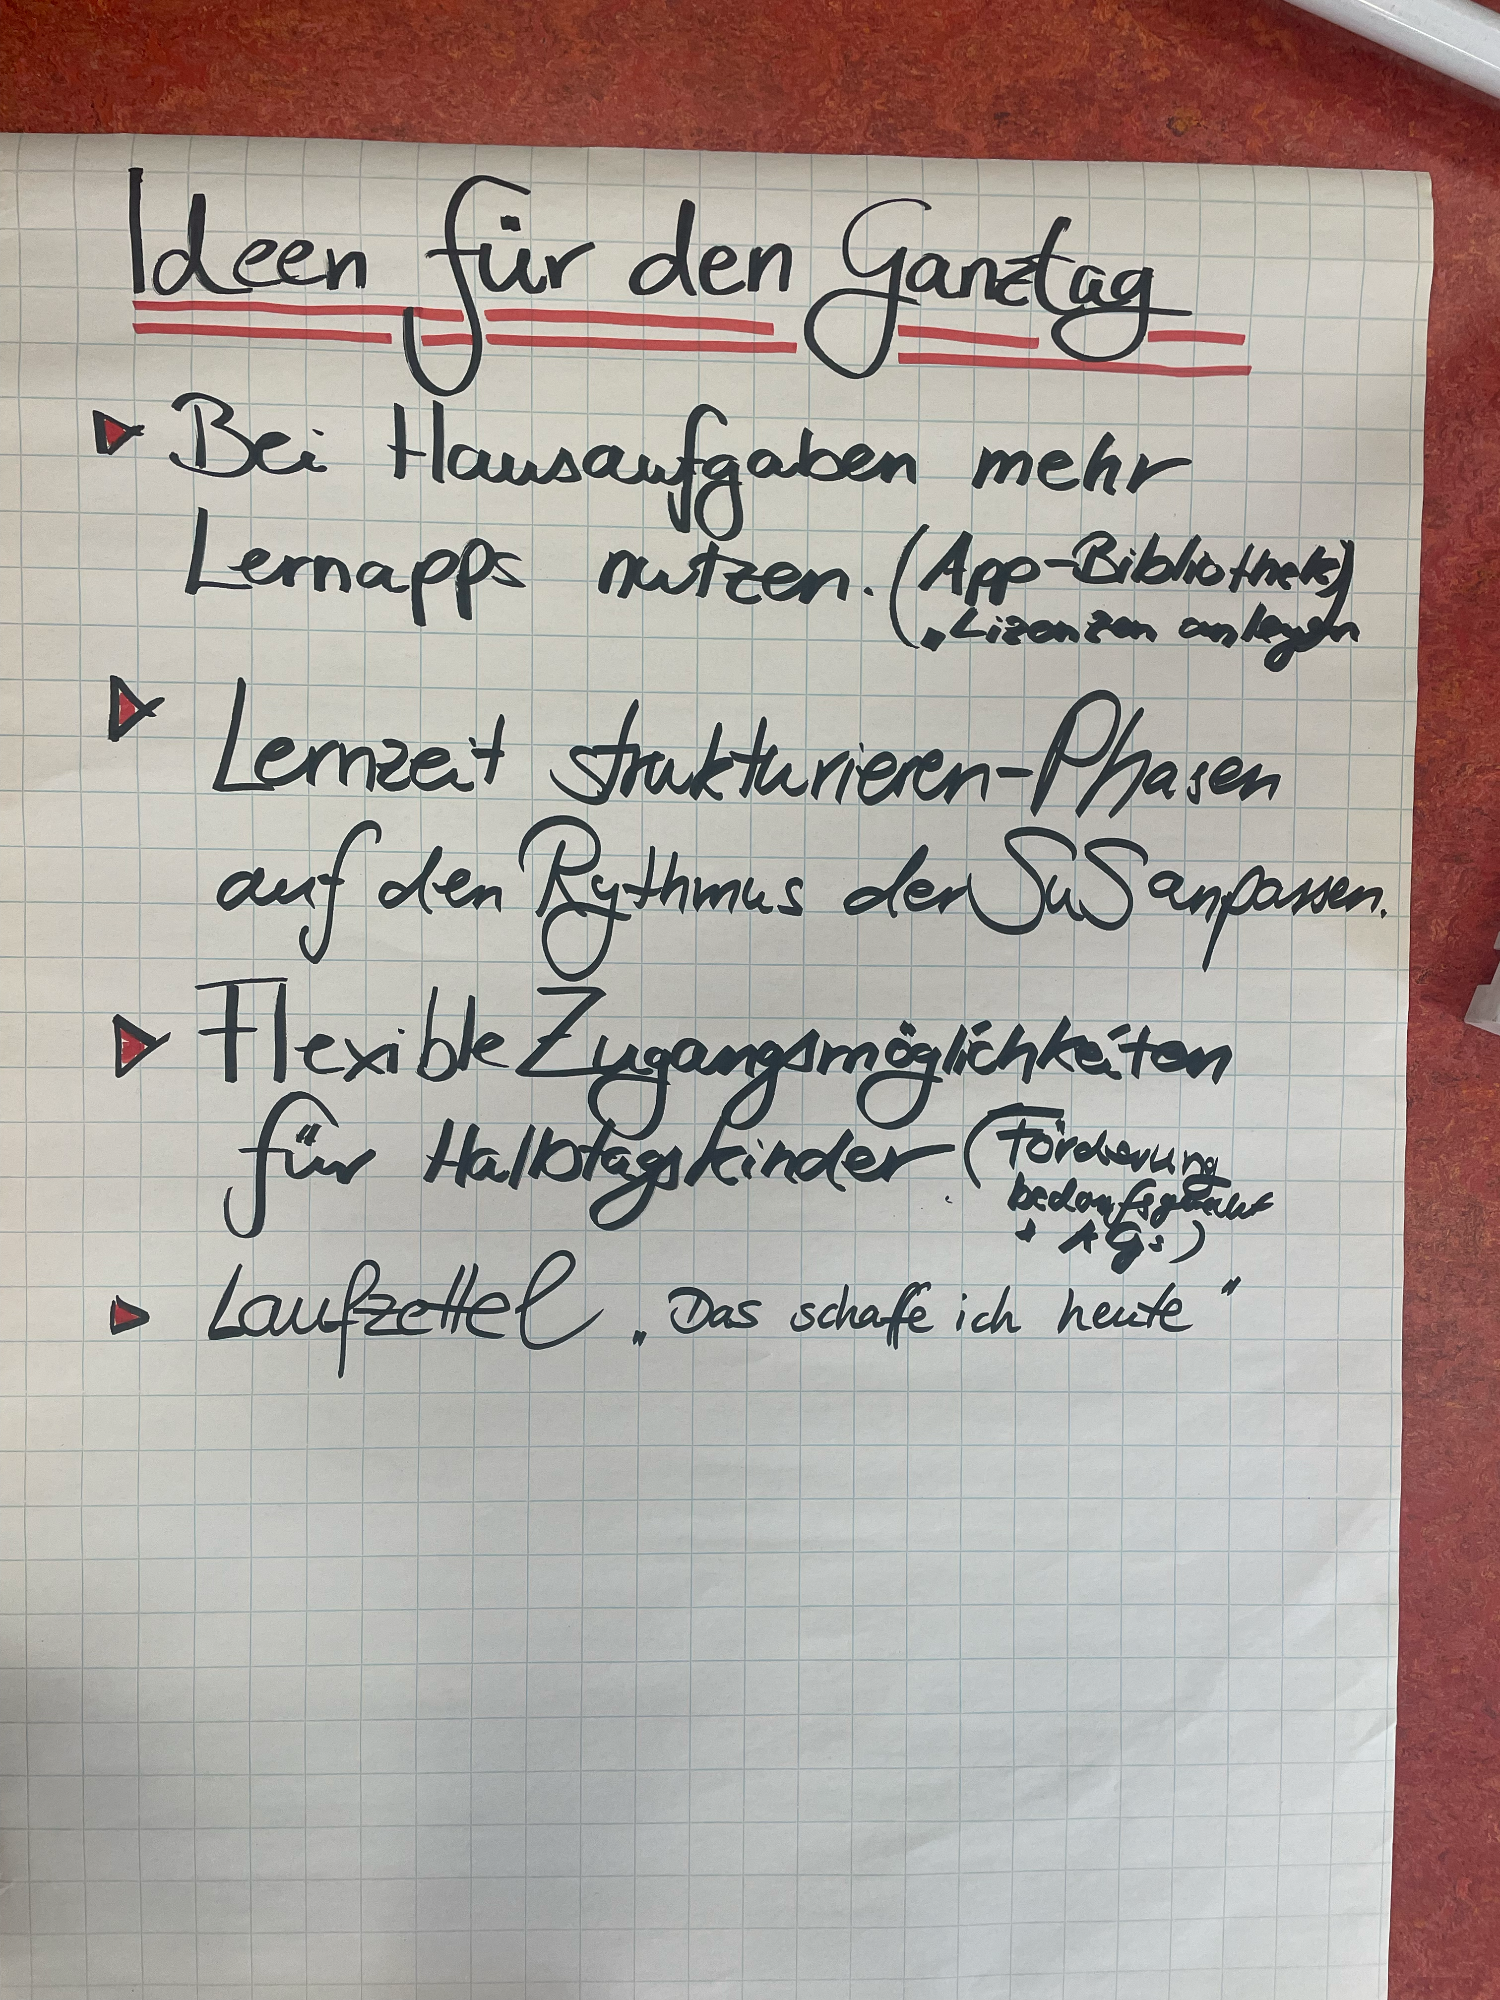 Ideen für den Ganztag
Bei Hausaufgaben mehr
Lernapps nutzen. (App-Bibliothek)
"Lizenzen anlegen
Lernzeit strukturieren-Phasen
auf den Rythmus der SuS anpassen.
Flexible Zugangsmöglichkeiten
für Halbtagskinder (Förderung
bedarfsgerecht
+ AGs)
Laufzettel „Das schaffe ich heute“